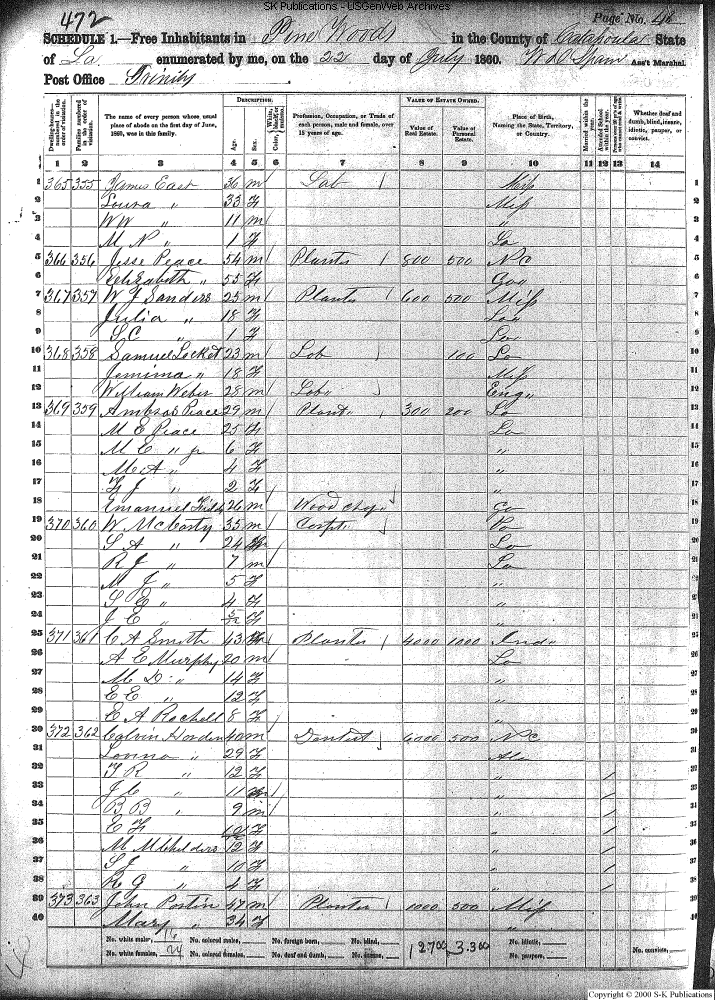 SK Publications - USGenWeb Archives
472
Page No. 46
SCHEDULE 1.—Free Inhabitants in Pine Woods in the County of Catahoula State
of La enumerated by me, on the 22 day of July 1860. Ass't Marshal.
Post Office Trinity
DESCRIPTION. VALUE OF ESTATE OWNED.
Dwelling-houses—numbered in the order of visitation.
Families numbered in the order of visitation.
The name of every person whose usual place of abode on the first day of June, 1860, was in this family.
Age.
Sex.
Color, White, black, or mulatto.
Profession, Occupation, or Trade of each person, male and female, over 15 years of age.
Value of Real Estate.
Value of Personal Estate.
Place of Birth, Naming the State, Territory, or Country.
Married within the year.
Attended School within the year.
Whether deaf and dumb, blind, insane, idiotic, pauper, or convict.
1 2 3 4 5 6 7 8 9 10 11 12 13 14
1 365 355 James East 36 m Lab 1
2 Loura " 33 F Miss 2
3 W W " 11 m " 3
4 M N " 1 F La 4
5 366 356 Jesse Peace 54 m Planter 800 500 N C 5
6 Elizabeth " 55 F Geo 6
7 367 357 W J Sanders 25 m Planter 600 500 Miss 7
8 Julia " 18 F Lou 8
9 S C " 1 F Lou 9
10 368 358 Samuel Locket 23 m Lab 100 La 10
11 Jemima " 18 F Miss 11
12 William Weber 28 m Lab Eng 12
13 369 359 Ambros Peace 29 m Plant 300 200 La 13
14 M E Peace 25 F La 14
15 M E " jr 6 F " 15
16 M A " 4 F " 16
17 F J " 2 F " 17
18 Emanuel 26 m Wood chop Ge 18
19 370 360 W McCarty 35 m Carpt 19
20 S A " 24 La 20
21 R J " 7 m La 21
22 M J " 5 F " 22
23 S E " 4 F " 23
24 J E " 5/12 F " 24
25 371 361 C A Smith 43 Planter 4000 1000 Ind 25
26 A E Murphy 20 m La 26
27 M D " 14 F " 27
28 E E " 12 F " 28
29 E A Rochell 8 F " 29
30 372 362 Calvin Horden 40 m Dentist 6000 500 N C 30
31 Lovina " 29 F Ala 31
32 T R " 12 F " 32
33 J C " 11 " 33
34 B B " 9 m " 34
35 E F F " 35
36 M M Childers 12 F " 36
37 S J " 10 F " 37
38 R G " 4 F " 38
39 373 363 John Postin 47 m Planter 1000 500 Miss 39
40 Mary " 34 F " 40
No. white males, 16 No. colored males, No. foreign born, No. blind, 12700 3.300 No. idiotic,
No. white females, 24 No. colored females, No. deaf and dumb, No. insane, No. paupers, No. convicts,
Copyright © 2000 S-K Publications